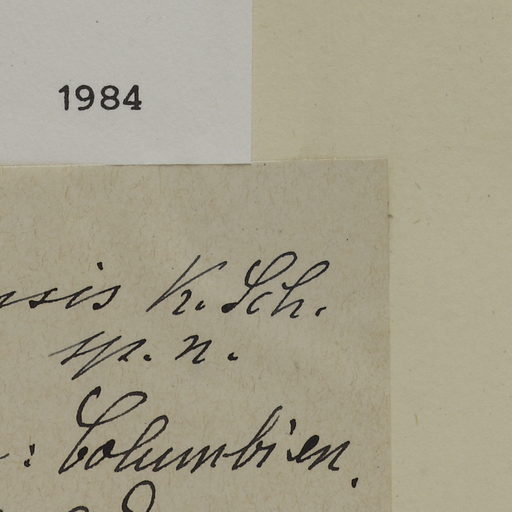 1984
nsis K. Sch.
sp. n.
: Columbien.